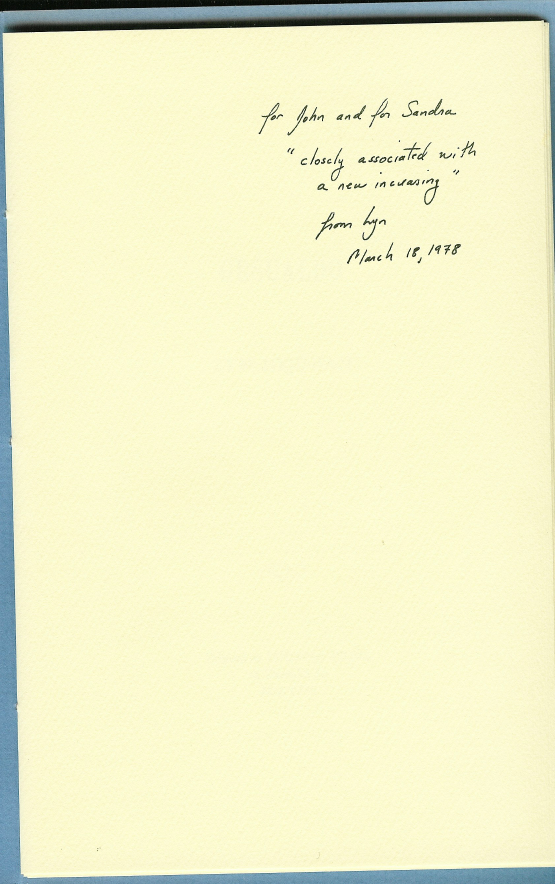 for John and for Sandra
"closely associated with
a new increasing"
from Lyn
March 18, 1978